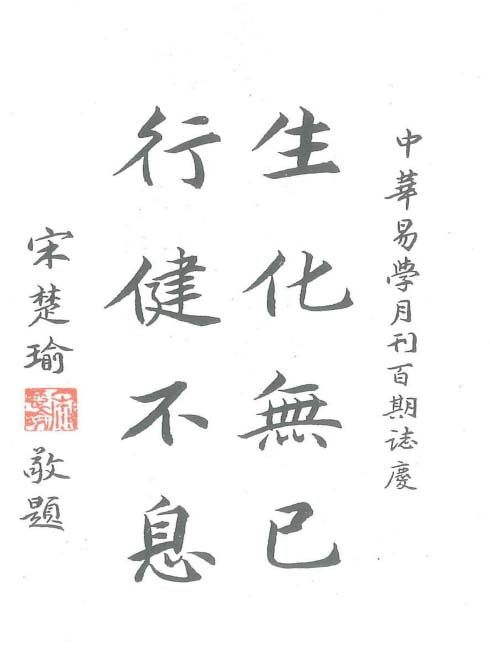 中華易學月刊百期誌慶
生化無已
行健不息
宋楚瑜 敬題